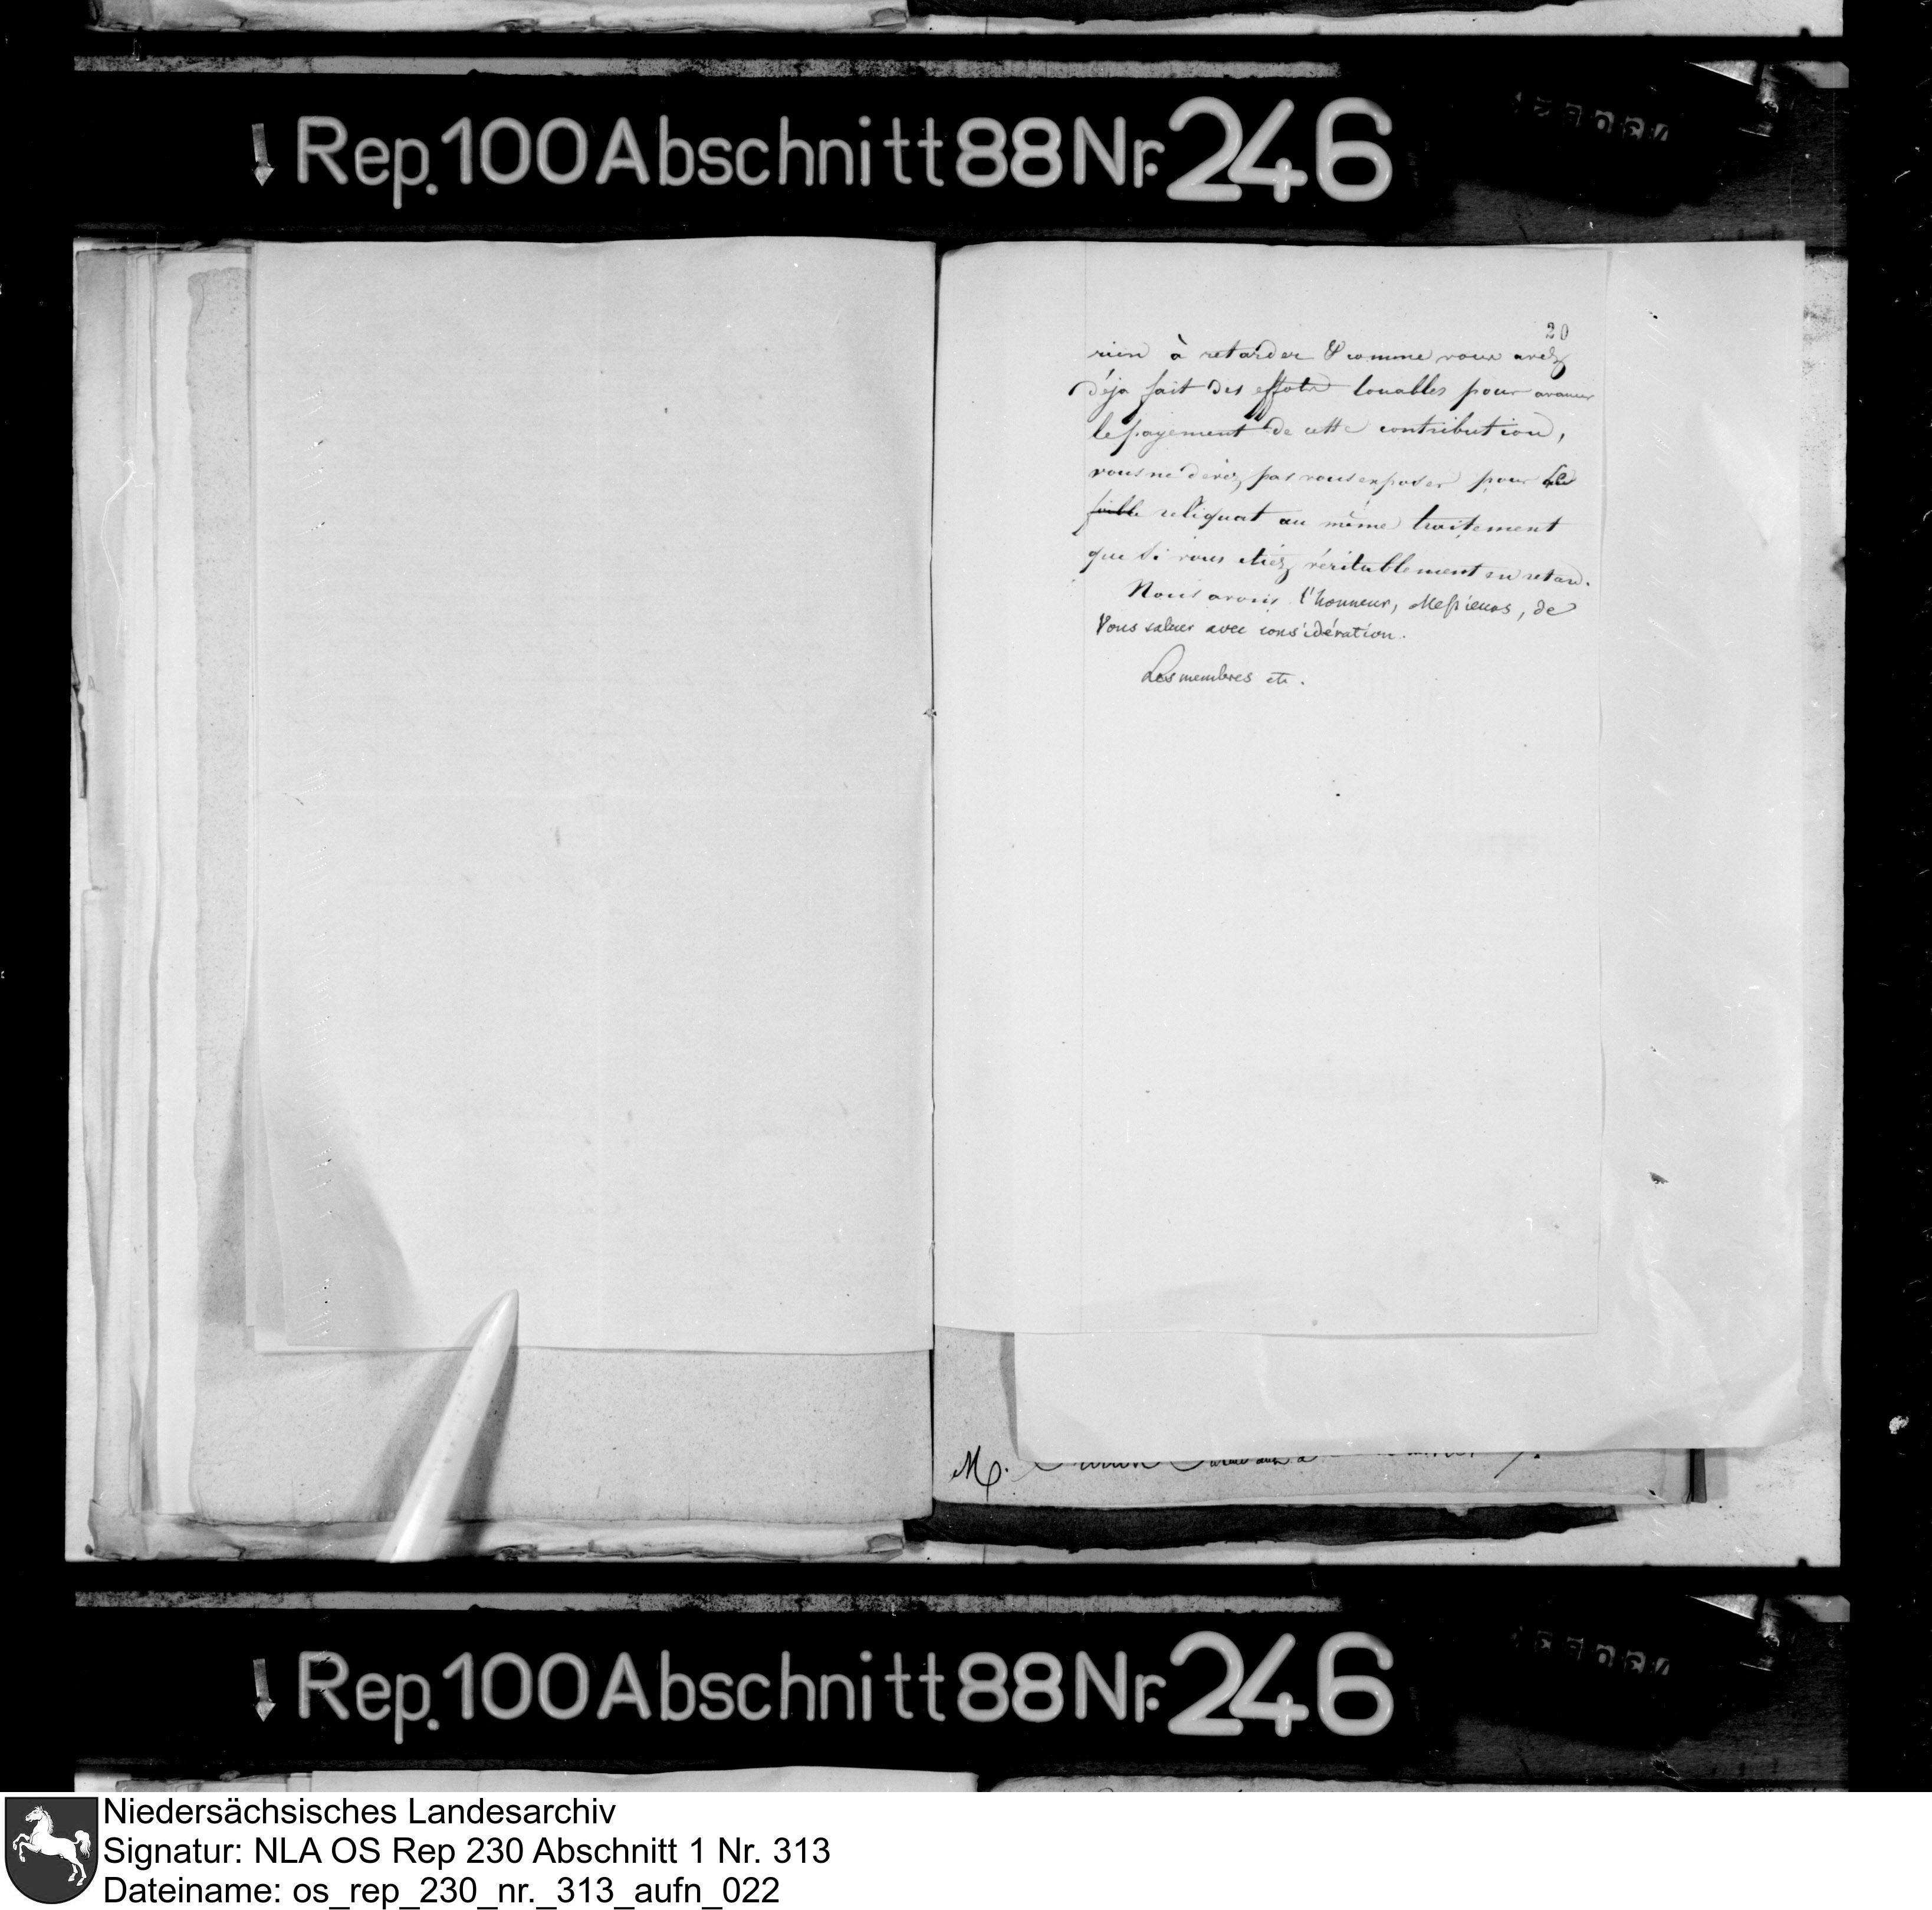 Rep. 100 Abschnitt 88 Nr. 246
20
rien à retarder & comme vous avez
déja fait des efforts louables pour avancer
le payement de cette contribution,
vous ne devez pas vous exposer pour le
foible reliquat au même traitement
que si vous etiez véritablement en retard.
Nous avons l'honneur, Messieurs, de
Vous saluer avec considération.
Les membres etc.
M.
Rep. 100 Abschnitt 88 Nr. 246
Niedersächsisches Landesarchiv
Signatur: NLA OS Rep 230 Abschnitt 1 Nr. 313
Dateiname: os_rep_230_nr._313_aufn_022